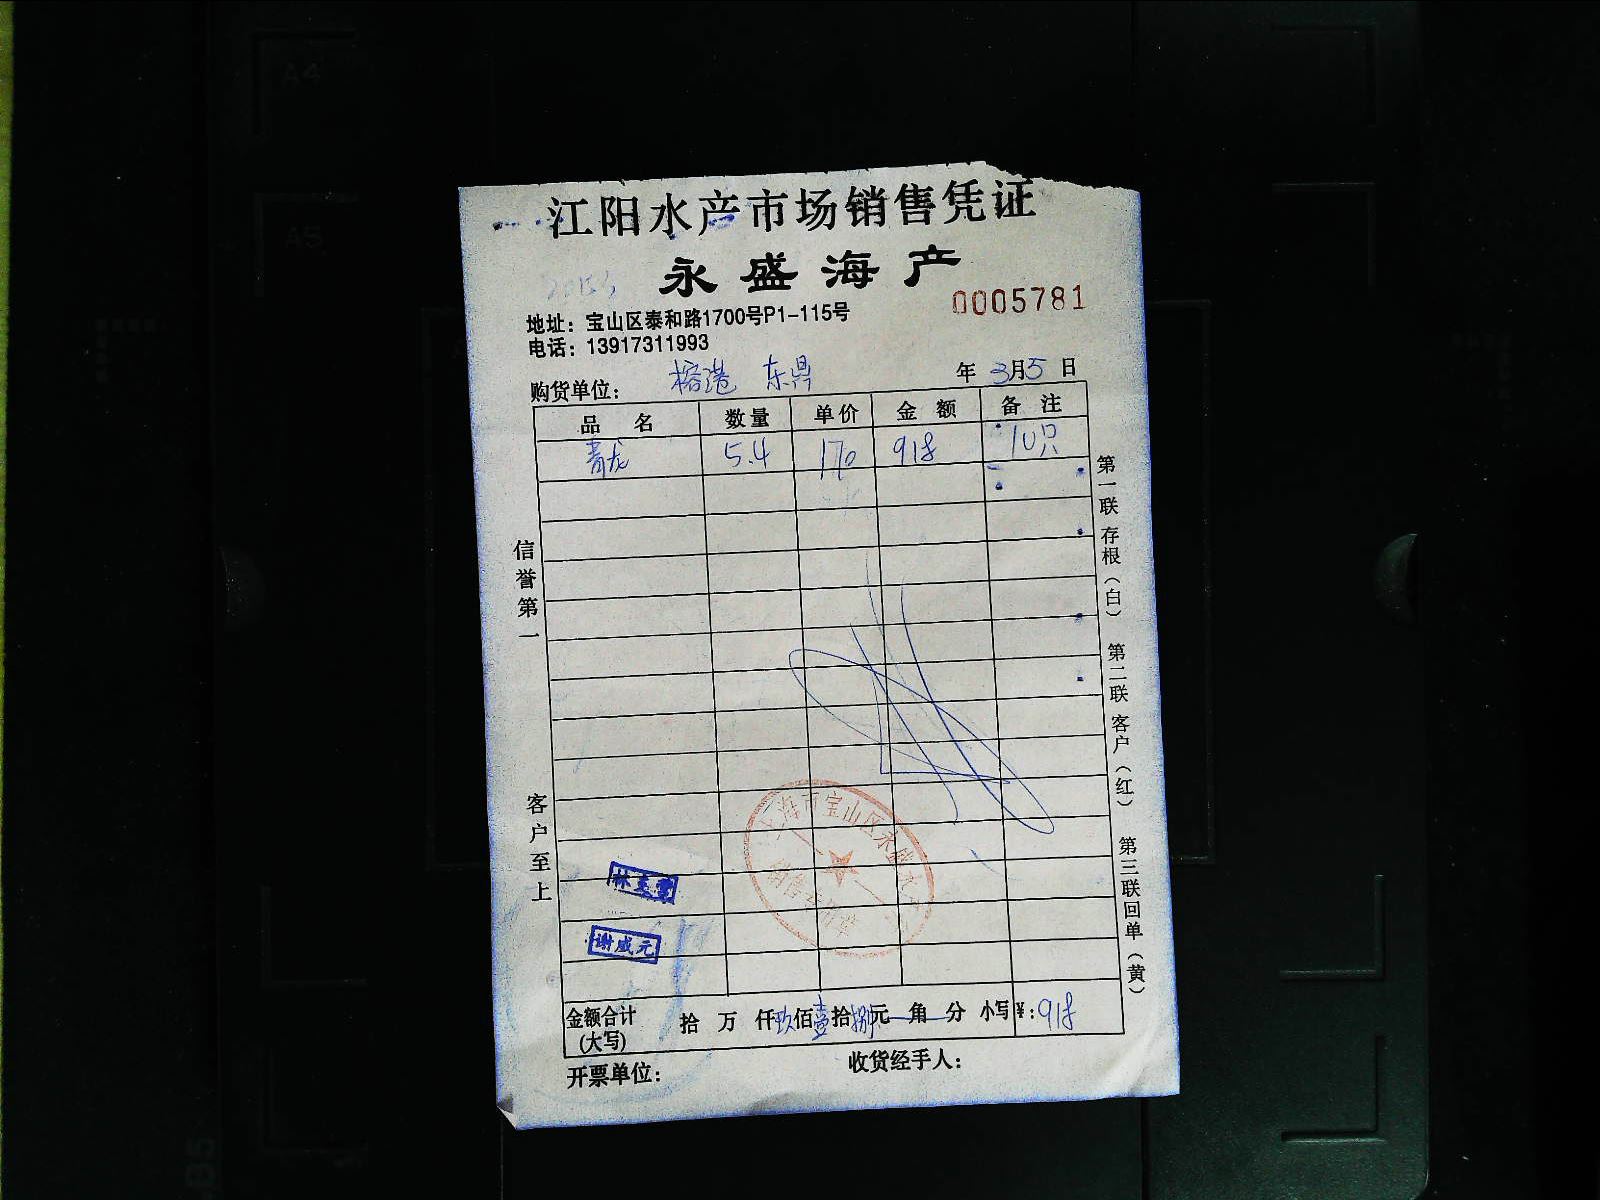 A4
A5
B5
江阳水产市场销售凭证
永盛海产
0005781
地址：宝山区泰和路1700号P1-115号
电话：13917311993
购货单位： 榕港 东鼎 年3月5日
品名 数量 单价 金额 备注
青龙 5.4 170 918 10只
信誉第一
客户至上
第一联 存根（白） 第二联 客户（红） 第三联回单（黄）
上海市宝山区永盛水
谢盛元
金额合计 拾 万 仟玖佰壹拾捌元 角 分 小写¥：918
(大写)
开票单位： 收货经手人：